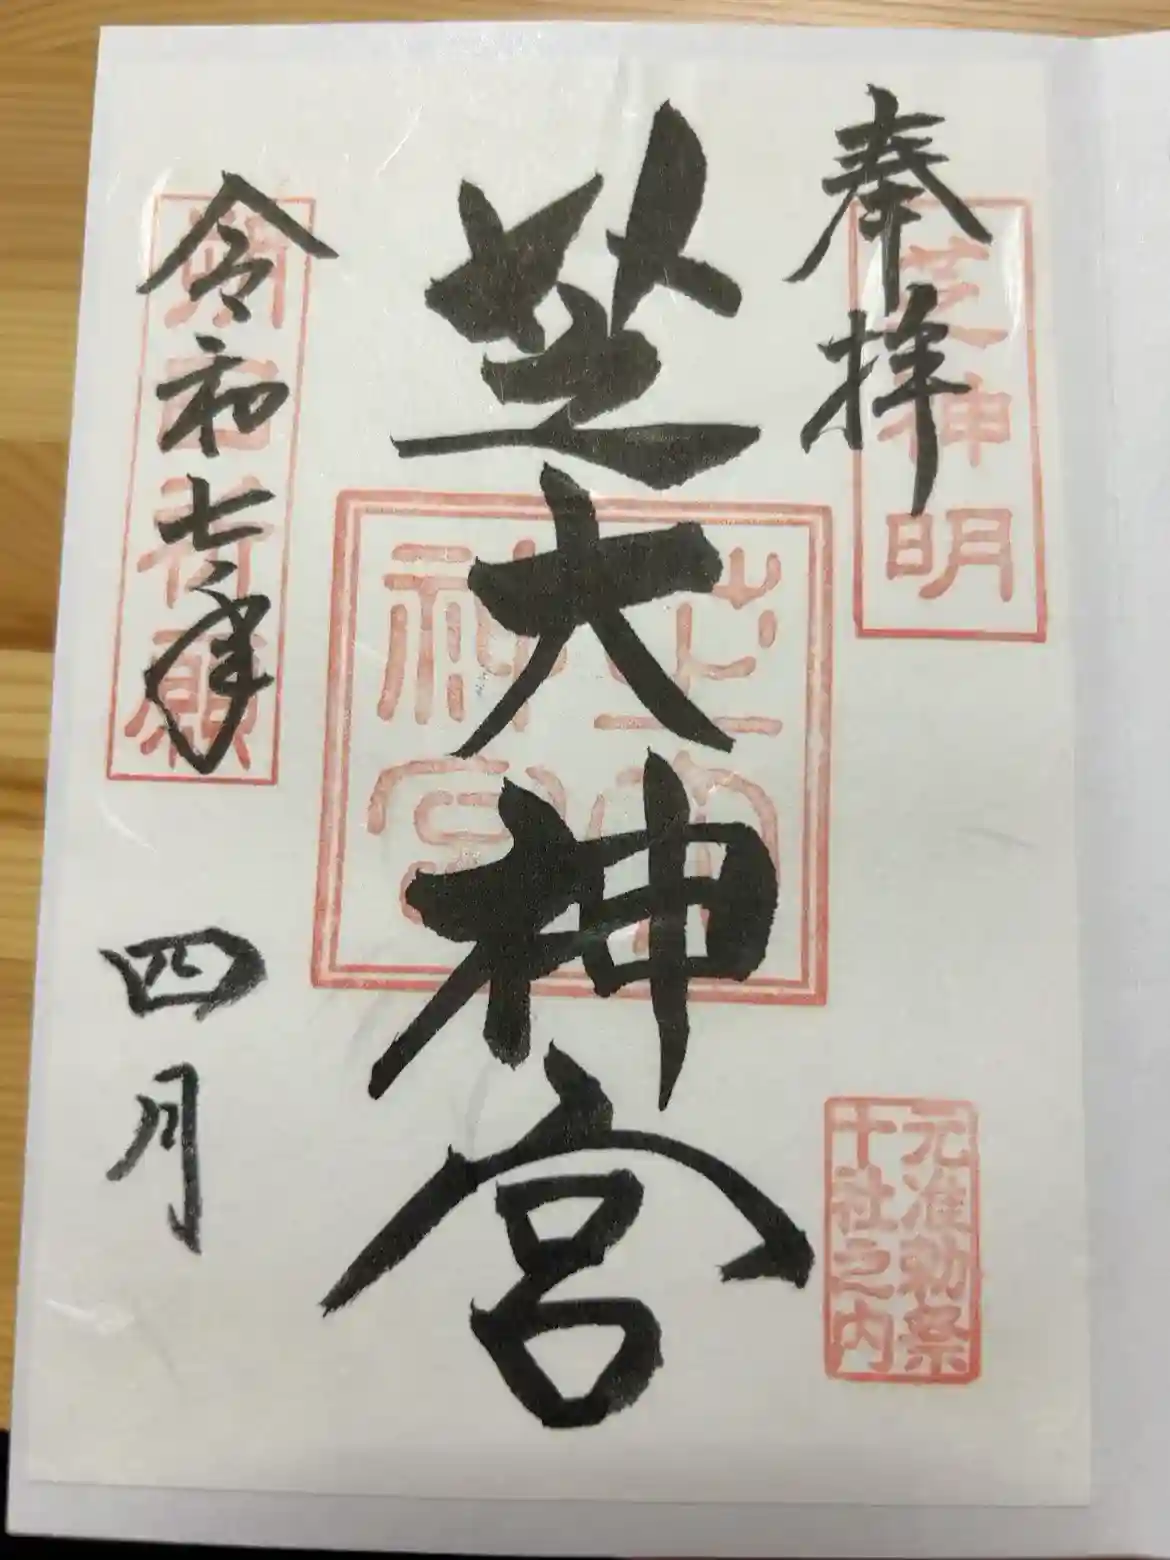 奉拝
芝神明
元准勅祭
十社之内
芝大神宮
芝大
神宮
令和七年
四月
願